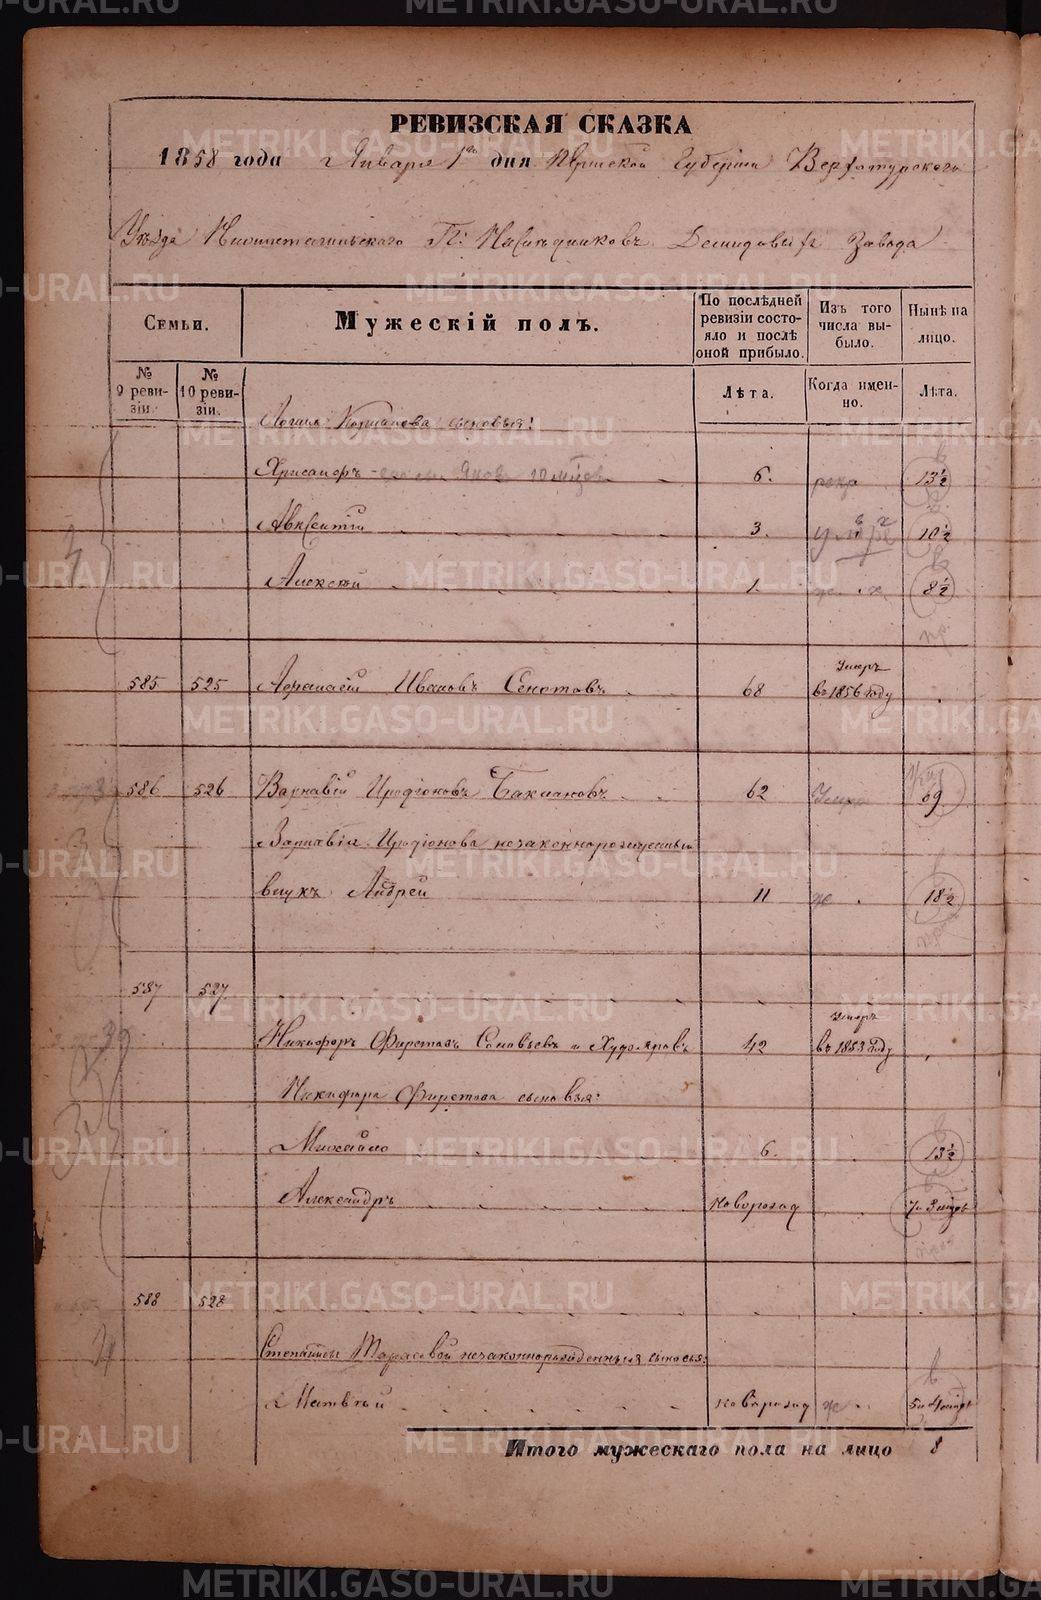 РЕВИЗСКАЯ СКАЗКА
1858 года Января 1го дня Пермской Губернiи Верхотурскаго
Уѣзда Нижнетагильскаго Гг: Наслѣдниковъ Демидовыхъ Завода
Семьи.
Мужескiй полъ.
По послѣдней ревизiи состояло и послѣ оной прибыло.
Изъ того числа выбыло.
Нынѣ на лицо.
№ 9 ревизiи.
№ 10 ревизiи.
Лѣта.
Когда именно.
Лѣта.
сыновья:
Хрисанфъ 6. 13½
Авксентiй 3. 10½
Алексѣй 1. 8½
585 525 Афанасiй Ивановъ 68 Умеръ въ 1856 году
586 526 Варнавiй Иродiоновъ Бакшановъ 62 69
Варнавiя Иродiонова незаконнорожденный
внукъ Андрей 11 18½
587 527
Никифоръ Фирстовъ Соловьевъ и Худояровъ 42 Умеръ въ 1853 году
Никифора Фирстова сыновья:
Михайло 6. 13½
Александръ новорожд 7 и 3 мцъ
588 528
Степаниды Тарасовой незаконнорожденныя сыновья:
Матвѣй новорожд 5 и 4 мцъ
Итого мужескаго пола на лицо 8
METRIKI.GASO-URAL.RU